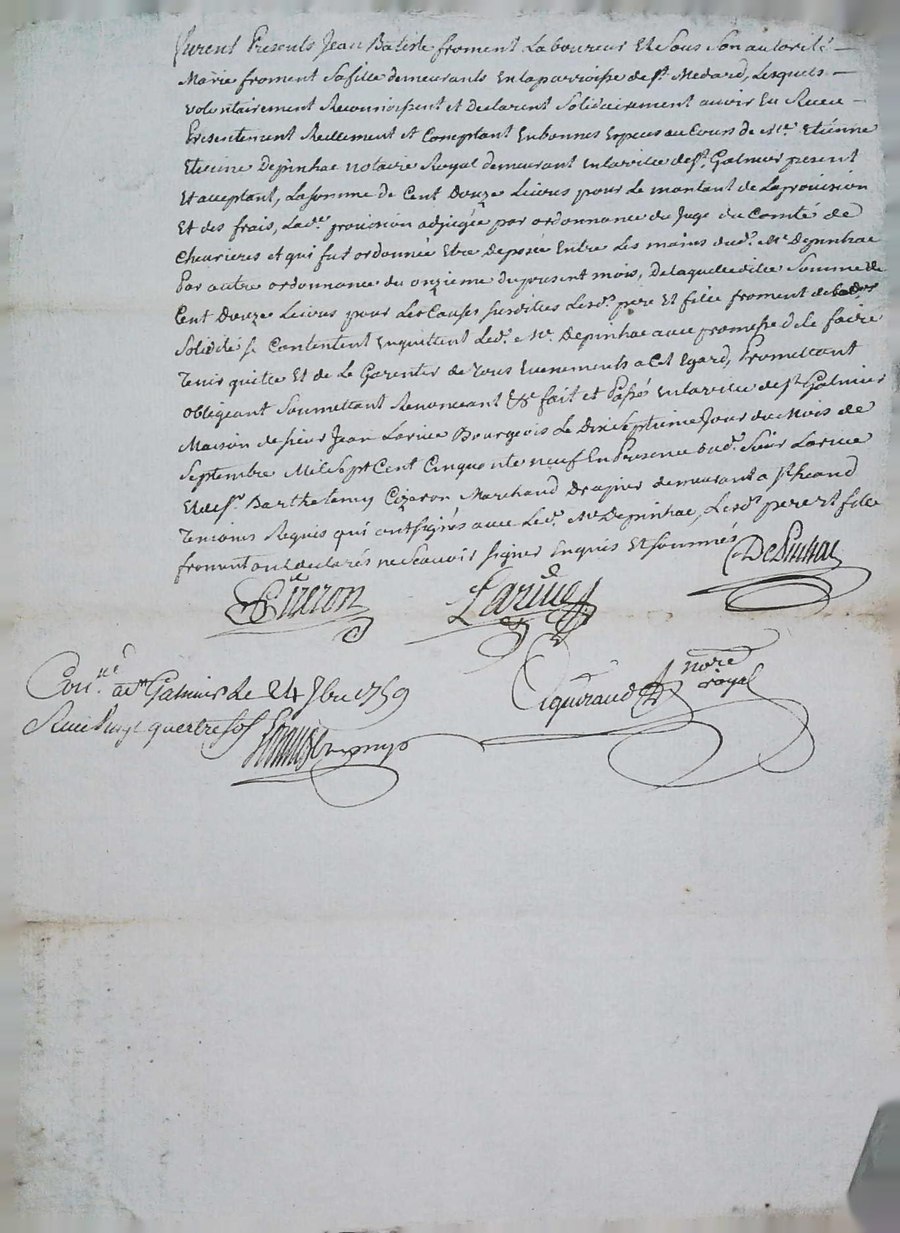 furent Presents Jean Batiste froment Laboureur Et Sous Son autorité
Marie froment Sa fille demeurants En la parroisse de St. Medard, Lesquels
volontairement Reconnoissent et Declarent Solidairement avoir Eu Receu
Presentement Reellement et Comptant En bonnes Especes au Cours de Me. Etiénne
Etienne Depinhac notaire Royal demeurant En la ville de St. Galmier present
Et acceptant, La somme de Cent Douze Livres pour Le montant de La provision
Et des frais, Lade. provision adjugée par ordonnance du Juge du Comté de
Chevrieres et qui fut ordonnée Etre Deposée Entre Les mains dud. Me. Depinhac
Par autre ordonnance du onzieme du present mois, De laquelle dite Somme de
Cent Douze Livres pour Les Causes susdittes Lesds. pere Et fille froment de
Solidité se Contentent En quittent Led. Me. Depinhac avec promesse de le faire
Tenir quitte Et de Le Garentir de Tous Evenements a Cet Egard, Promettant
obligeant Soumettant Renonceant &c fait et Passé En la ville de St. Galmier
Maison de sieur Jean Larive Bourgeois Le Dix Septieme Jour du Mois de
Septembre Mil Sept Cent Cinquante neuf En Presence dud. Sieur Larive
Et de Sr. Barthelemy Cizeron Marchand Drapier demeurant a St.
Temoins Requis qui ont signés avec Led. Me. Depinhac, Lesds. pere Et fille
froment ont declarés ne Scavoir signer Enquis Et sommés
Cizeron Larive Depinhac
Con.lé a St. Galmier le 24 7bre 1759
Reçu vingt quattre sols
notre royal